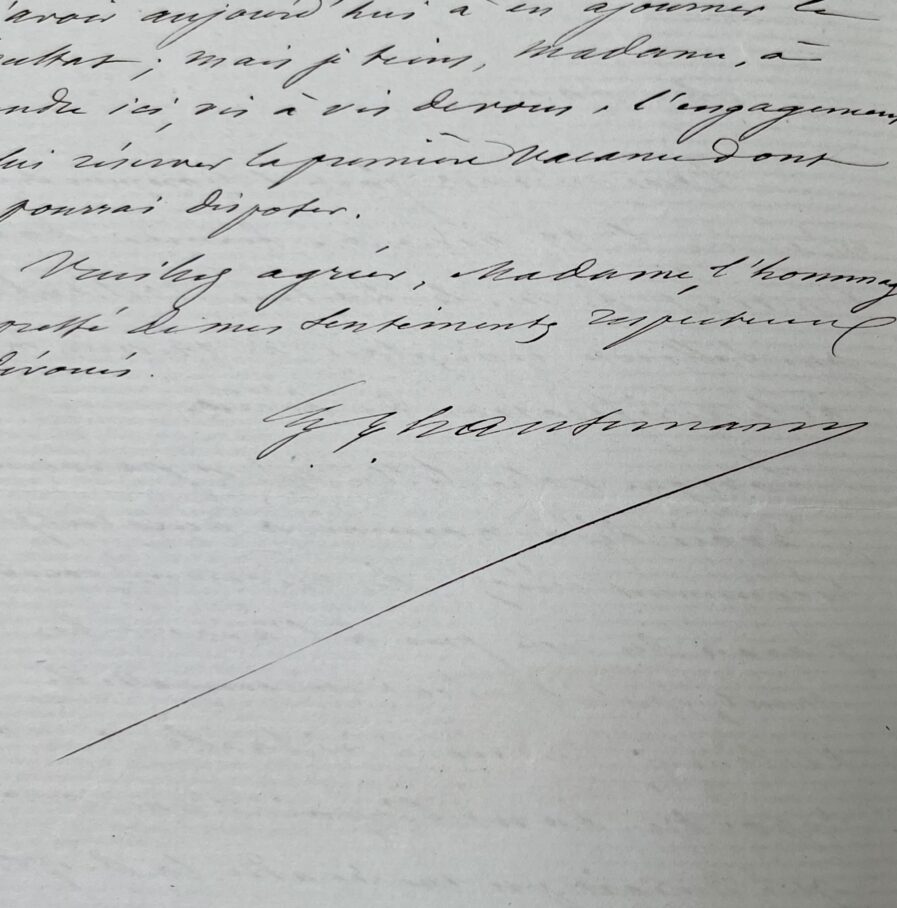 avoir aujourd'hui à en ajourner le
sultat ; mais je tiens, Madame, à
endre ici, vis à vis de vous, l'engagemen
lui réserver la première vacance dont
pourrai disposer.
Veuillez agréer, Madame, l'hommag
de mes sentiments respectueux
dévoués.
G. E. haussmann